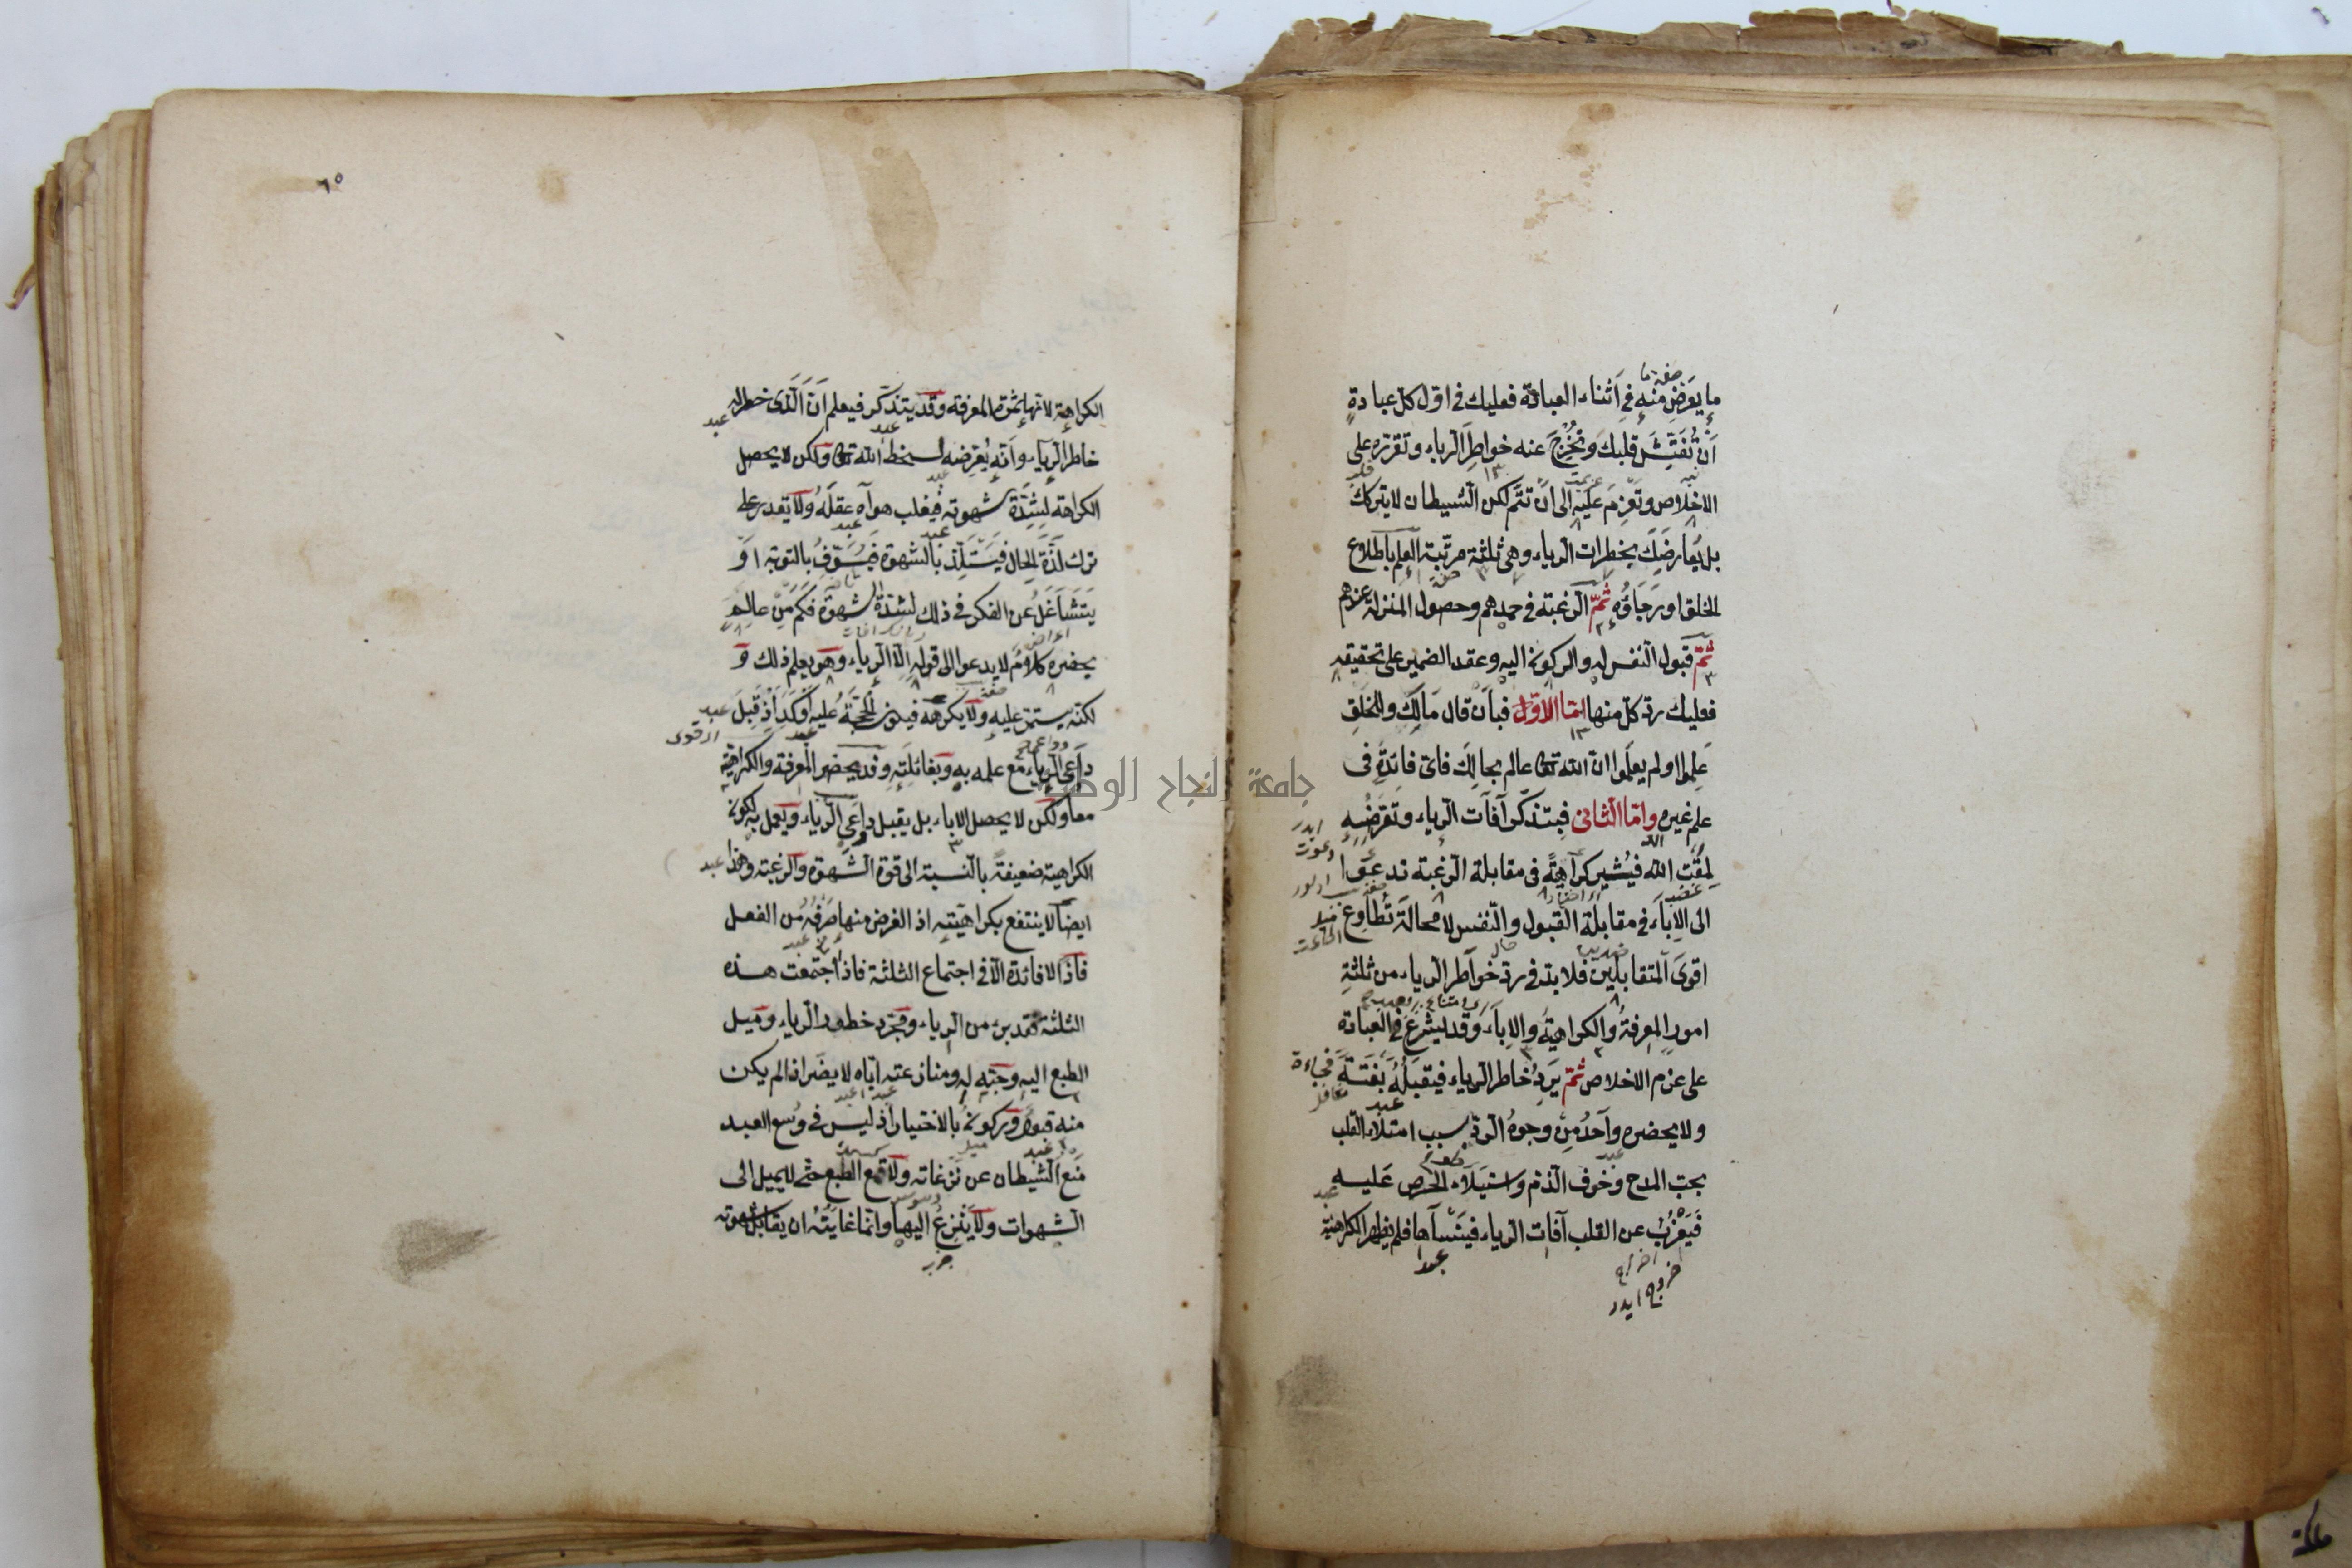 ما يعرض منه في اثناء العبادة فعليك في اول كل عبادة
ان تفتش قلبك وتخرج عنه خواطر الرياء وتقرره على
الاخلاص وتعزم عليه الى ان تتم لكن الشيطان لا يتركك
بل يعارضك بخطرات الرياء وهى ثلثة مرتبة العلم باطلاع
الخلق او رجاؤه ثم الرغبة في حمدهم وحصول المنزلة عندهم
ثم قبول النفس له والركون اليه وعقد الضمير على تحقيقه
فعليك رد كل منها اما الاول فبان قال مالك وللخلق
علموا او لم يعلموا ان الله تعالى عالم بحالك فاى فائدة في
علم غيره واما الثانى فبتذكر آفات الرياء وتعرضه
لمقت الله فيشير كراهية في مقابلة الرغبة تدعوا
الى الاباء في مقابلة القبول والنفس لا محالة تطاوع
اقوى المتقابلين فلا بد في رد خواطر الرياء من ثلثة
امور المعرفة والكراهية والاباء وقد يشرع في العبادة
على عزم الاخلاص ثم يرد خاطر الرياء فيقبله بغتة
ولا يحضره واحد من وجوه الرد بسبب امتلاء القلب
بحب المدح وخوف الذم واستيلاء الحرص عليه
فيعزب عن القلب آفات الرياء فينساها فلم يظهر الكراهية
اخراج
خروج ايدر
٦٥
الكراهة لانها ثمرة المعرفة وقد يتذكر فيعلم ان الذى خطر له
خاطر الرياء وانه يعرضه لسخط الله تعالى ولكن لا يحصل
الكراهة لشدة شهوته فيغلب هواه عقله ولا يقدر على
ترك لذة الحال فيستلذ بالشهوة فيسوف بالتوبة او
يتشاغل عن الفكر في ذلك لشدة الشهوة فكم من عالم
يحضره كلام لا يدعوا الى قوله الا الرياء وهو يعلم ذلك و
لكنه يستمر عليه ولا يكرهه فيكون الحجة عليه اوكد اذ قبل
داعى الرياء مع علمه به وبغائلته وقد يحضر المعرفة والكراهية
معا ولكن لا يحصل الاباء بل يقبل داعى الرياء ويعمل به لكون
الكراهية ضعيفة بالنسبة الى قوة الشهوة والرغبة وهذا
ايضا لا ينتفع بكراهيته اذ الغرض منها صرفه من الفعل
فاذا لا فائدة الا في اجتماع الثلثة فاذا اجتمعت هذه
الثلثة فقد برء من الرياء ومجرد خطور الرياء وميل
الطبع اليه وحبه له ومنازعته اياه لا يضر اذا لم يكن
منه قبول وركون بالاختيار اذ ليس في وسع العبد
منع الشيطان عن نزغاته ولا قمع الطبع حتى لا يميل الى
الشهوات ولا ينزع اليها وانما غايته ان يقابل شهوته
جامعة النجاح الوطنية